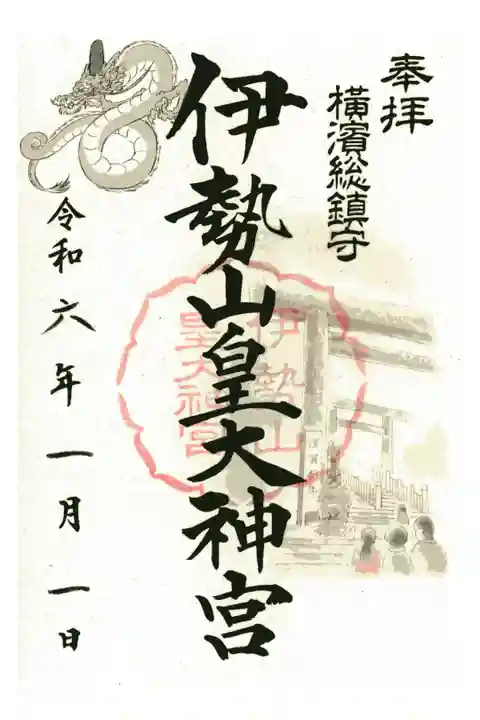 奉拝
横濱総鎮守
伊勢山皇大神宮
伊勢山
皇大神宮
令和六年一月一日